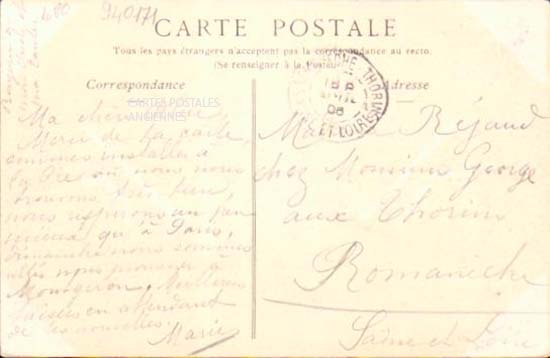 940171
CARTE POSTALE
Tous les pays étrangers n'acceptent pas la correspondance au recto.
(Se renseigner à la Poste)
Correspondance
Adresse
CARTES POSTALES
ANCIENNES
Ma chère
Merci de ta carte,
sommes installés à
la Pie où nous nous
trouvons très bien,
nous respirons un peu
mieux qu'à Paris,
dimanche nous sommes
allés nous promener à
Montgeron. Meilleurs
baisers en attendant
de tes nouvelles.
Marie
THORINS
ET-LOIRE
08
Réjaud
chez Monsieur George
aux Thorins
Romanèche
Saône et Loire